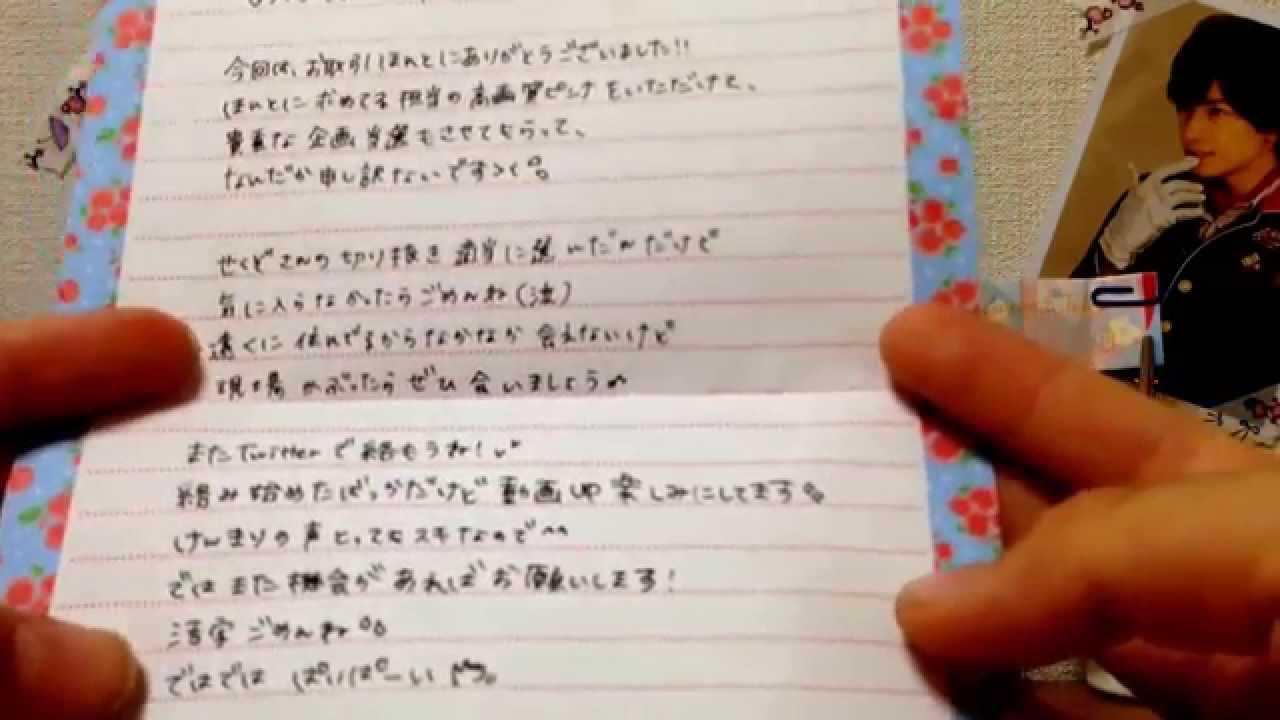 今回は、お取引ほんとにありがとうございました!!
ほんとに求めてる担当の高画質ピンナをいただけて、
貴重な企画当選もさせてもらって、
なんだか申し訳ないです
せくどさんの切り抜き適当に選いだんだけど
気に入らなかったらごめんね(泣)
遠くに住んでるからなかなか会えないけど
現場かぶったらぜひ会いましょう
またTwitterで絡もうね!
絡み始めたばっかだけど動画up楽しみにしてます
けんまりの声とってもスキなので^^
ではまた機会があればお願いします!
活字ごめんね
ではでは ばいばーい